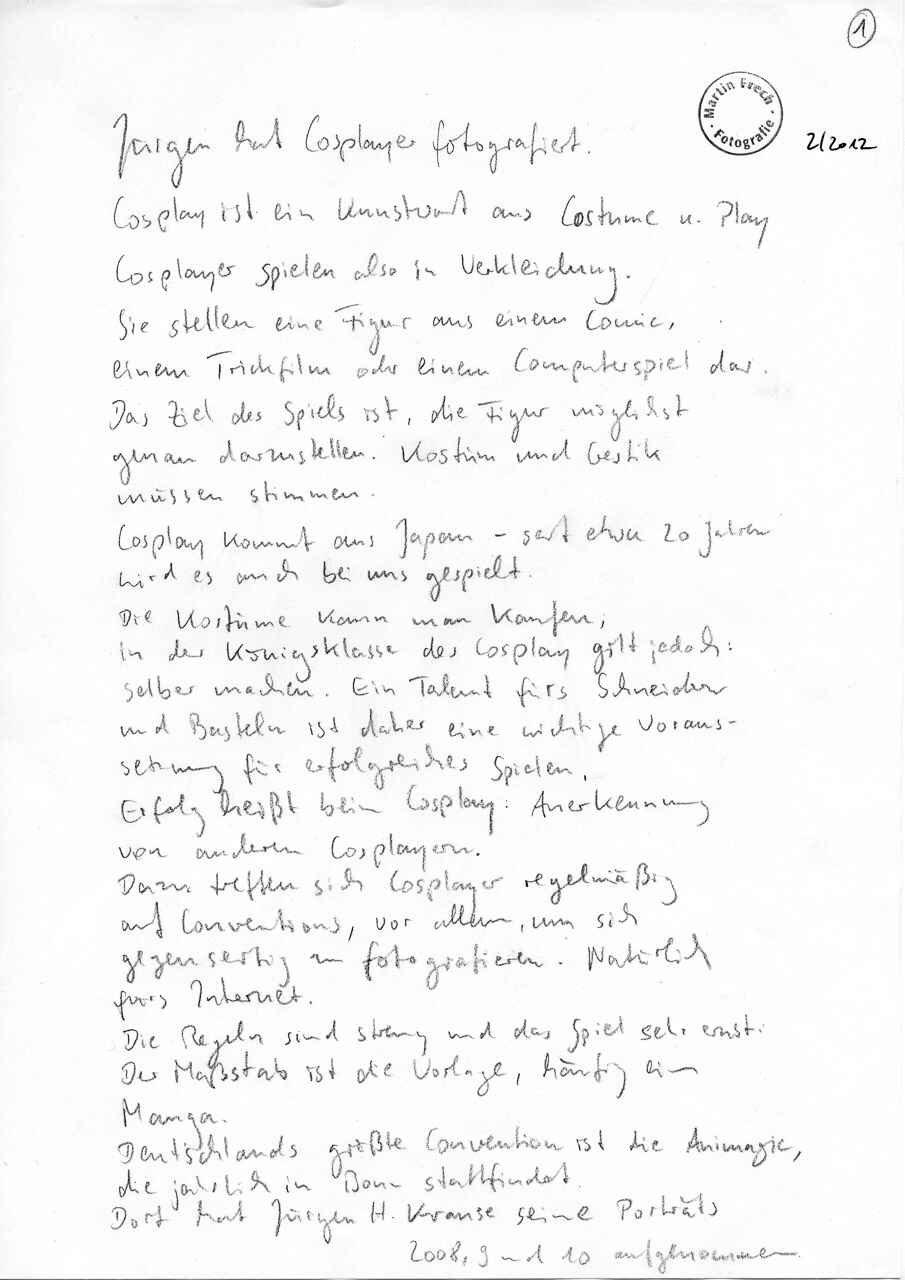 1
· Martin Frech · Fotografie
2/2012
Jürgen hat Cosplayer fotografiert.
Cosplay ist ein Kunstwort aus Costume u. Play
Cosplayer spielen also in Verkleidung.
Sie stellen eine Figur aus einem Comic,
einem Trickfilm oder einem Computerspiel dar.
Das Ziel des Spiels ist, die Figur möglichst
genau darzustellen. Kostüm und Gestik
müssen stimmen.
Cosplay kommt aus Japan – seit etwa 20 Jahren
wird es auch bei uns gespielt.
Die Kostüme kann man kaufen,
in der Königsklasse des Cosplay gilt jedoch:
selber machen. Ein Talent fürs Schneidern
und Basteln ist daher eine wichtige Voraus-
setzung für erfolgreiches Spielen.
Erfolg heißt beim Cosplay: Anerkennung
von anderen Cosplayern.
Dazu treffen sich Cosplayer regelmäßig
auf Conventions, vor allem, um sich
gegenseitig zu fotografieren. Natürlich
fürs Internet.
Die Regeln sind streng und das Spiel sehr ernst.
Der Maßstab ist die Vorlage, häufig ein
Manga.
Deutschlands größte Convention ist die Animagic,
die jährlich in Bonn stattfindet.
Dort hat Jürgen H. Krause seine Porträts
2008, 9 und 10 aufgenommen.